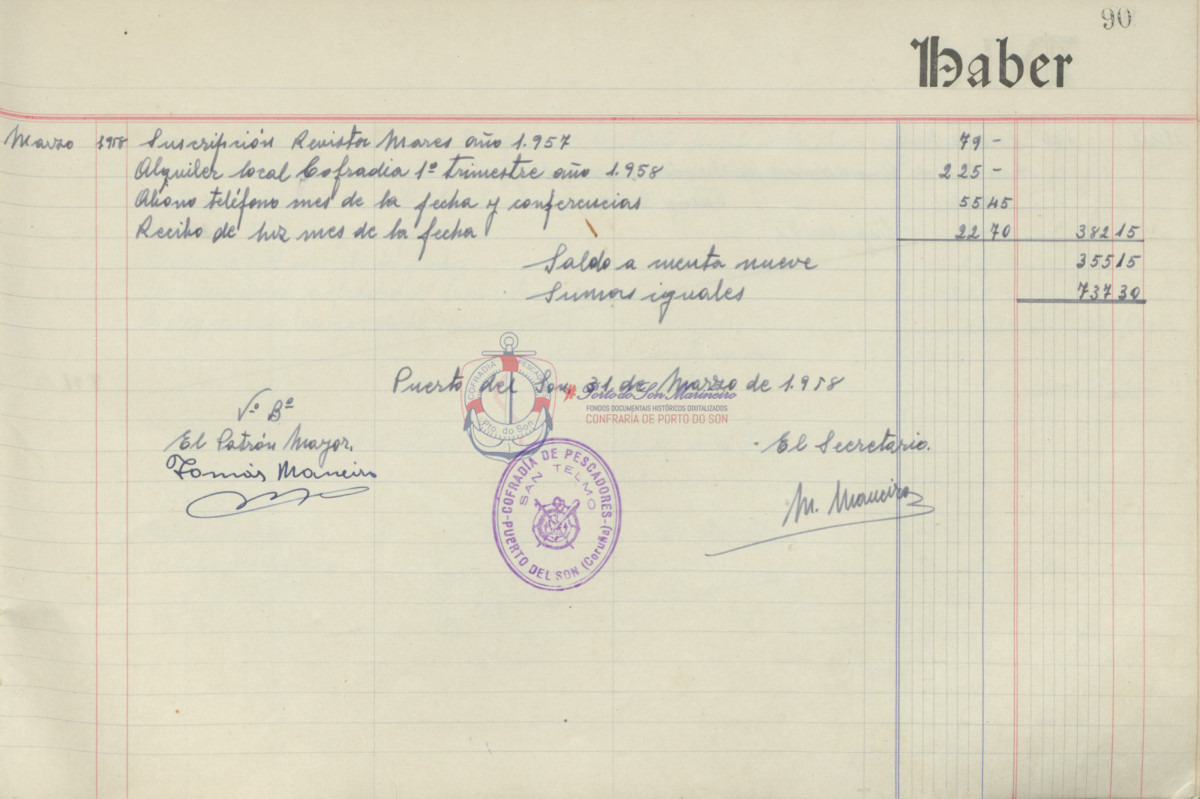 90
Haber
Marzo 1958 Suscripción Revista Mares año 1.957 79 -
Alquiler local Cofradia 1º trimestre año 1.958 225 -
Abono teléfono mes de la fecha y conferencias 55 45
Recibo de luz mes de la fecha 22 70 382 15
Saldo a cuenta nueva 355 15
Sumas iguales 737 30
Puerto del Son, 31 de Marzo de 1.958
COFRADIA PESCADORES
Pto. do Son
Porto do Son Mariñeiro
FONDOS DOCUMENTAIS HISTÓRICOS DIXITALIZADOS
CONFRARÍA DE PORTO DO SON
Vº Bº
El Patrón Mayor,
Tomás Maneiro
El Secretario.
M. Maneiro
COFRADIA DE PESCADORES - PUERTO DEL SON (Coruña)
SAN TELMO